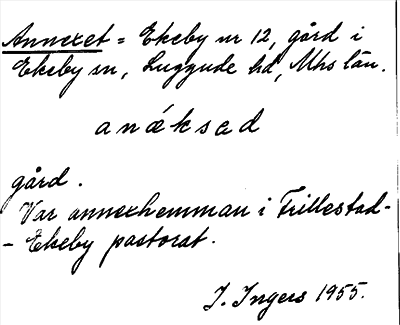 Annexet = Ekeby nr 12, gård i
Ekeby sn, Luggude hd, Mhs län.
anǽksad
gård.
Var annexhemman i Frillestad-
- Ekeby pastorat.
I. Ingers 1955.